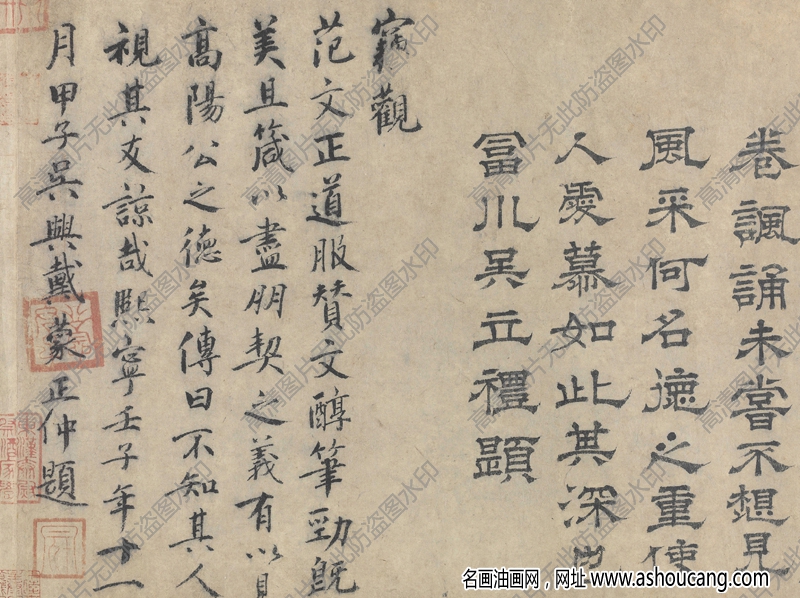 卷諷誦未嘗不想見
風采何名德之重使
人愛慕如此其深
富川吴立禮題
寳觀
范文正道服賛文醇筆勁既
美且箴以盡朋契之義有以見
高陽公之德矣傳曰不知其人
視其友諒哉熙寧壬子年十一
月甲子吳興戴蒙正仲題
高清图片无此防盗图水印
名画油画网，网址 www.ashoucang.com